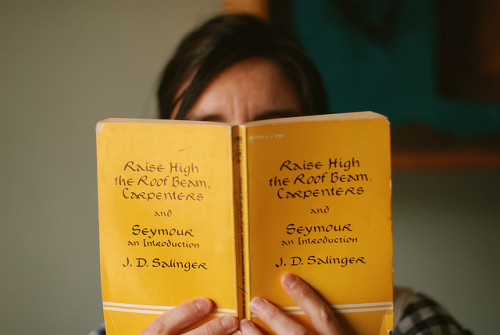 Raise High
the Roof Beam,
Carpenters
and
Seymour
an Introduction
J. D. Salinger
Raise High
the Roof Beam,
Carpenters
and
Seymour
an Introduction
J. D. Salinger